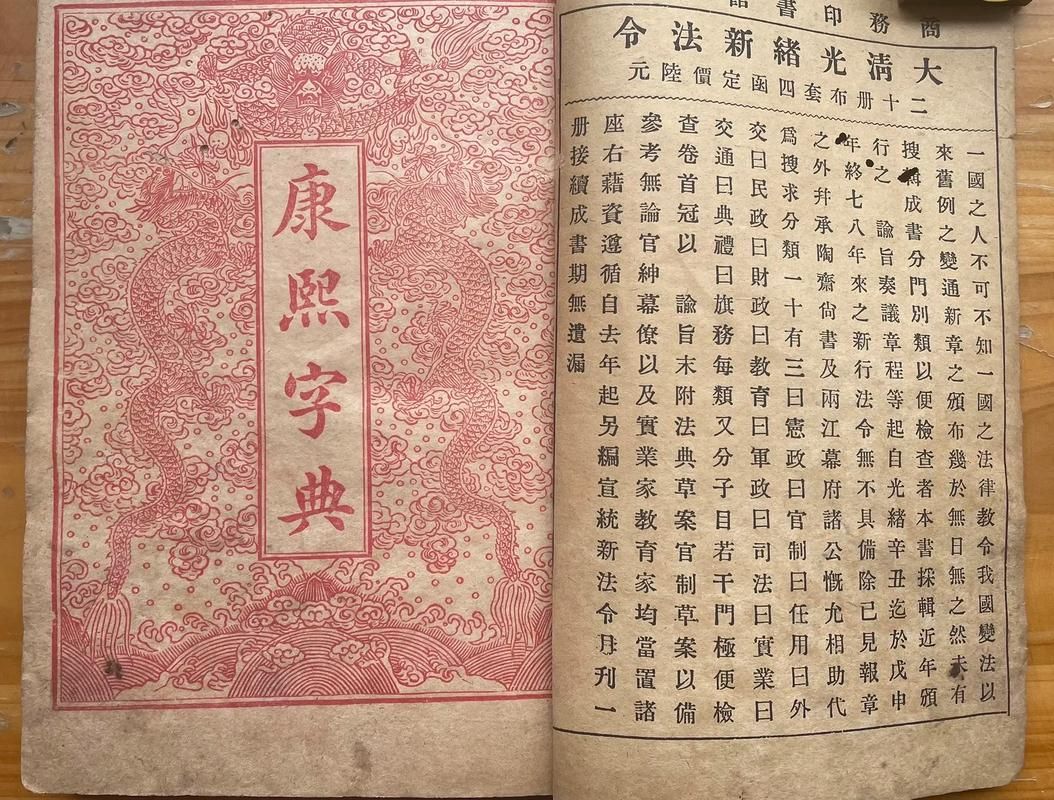 商務印書
大清光緒新法令
二十册布套四函定價陸元
一國之人不可不知一國之法律教令我國變法以
來舊例之變通新章之頒布幾於無日無之然未有
搜成書分門別類以便檢查者本書採輯近年頒
行之　諭旨奏議章程等起自光緒辛丑迄於戊申
年終七八年來之新行法令無不具備除已見報章
之外幷承陶齋尙書及兩江幕府諸公慨允相助代
爲搜求分類一十有三曰憲政曰官制曰任用曰外
交曰民政曰財政曰教育曰軍政曰司法曰實業曰
交通曰典禮曰旗務每類又分子目若干門極便檢
查卷首冠以　諭旨末附法典草案官制草案以備
參考無論官紳幕僚以及實業家教育家均當置諸
座右藉資遵循自去年起另編宣統新法令月刊一
册接續成書期無遺漏
康熙字典